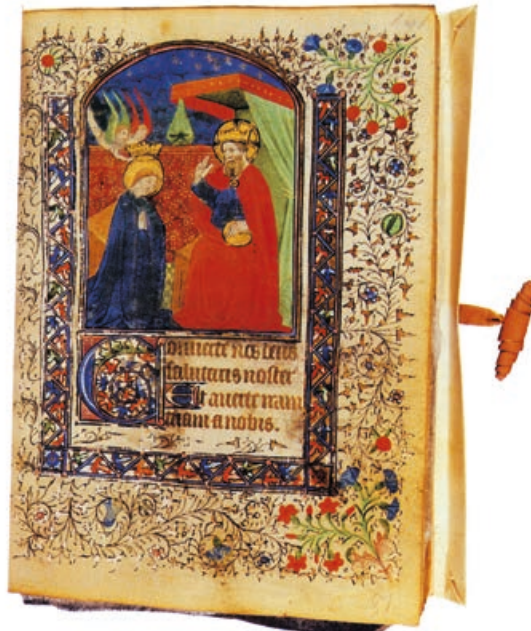 Conuerte nos deus
salutaris noster
Et auerte iram
tuam a nobis.